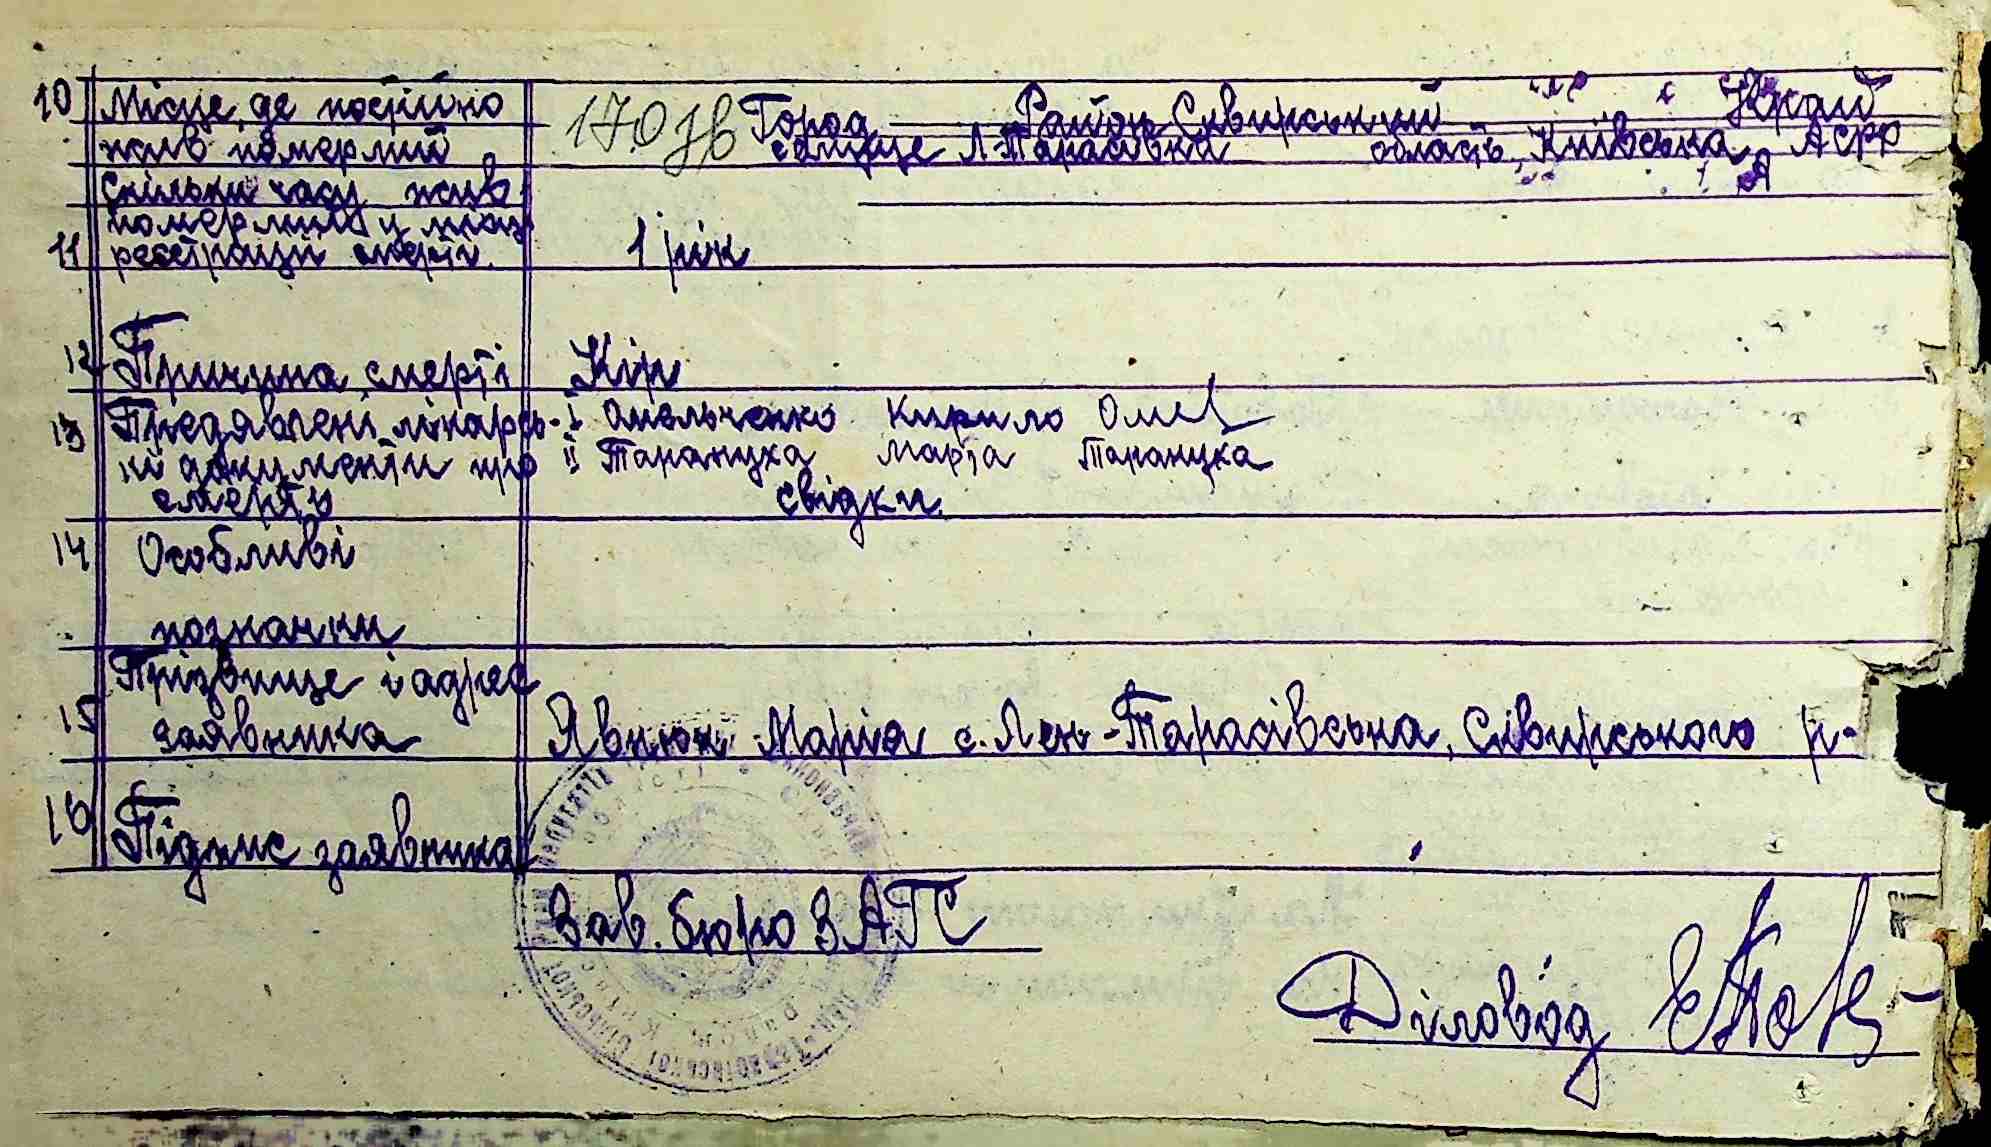 10 Місце, де постійно жив померлий
170 зв Город Район Сквирський Край
селище Л-Тарасівка область Київська АСРР
11 Скільки часу жив
померлий у місці
реєстрації смерти
1 рік
12 Причина смерті Кір
13 Предявлені лікарсь-
кі документи про
смерть
I Омельченко Кирило Омел
II Тарануха Марта Тарануха
свідки
14 Особливі
познанки
15 Прізвище і адрес
заявника
Явнюк Марія с. Лен-Тарасівська, Сквирського р-
16 Підпис заявника
Зав. бюро ЗАГС
Діловод